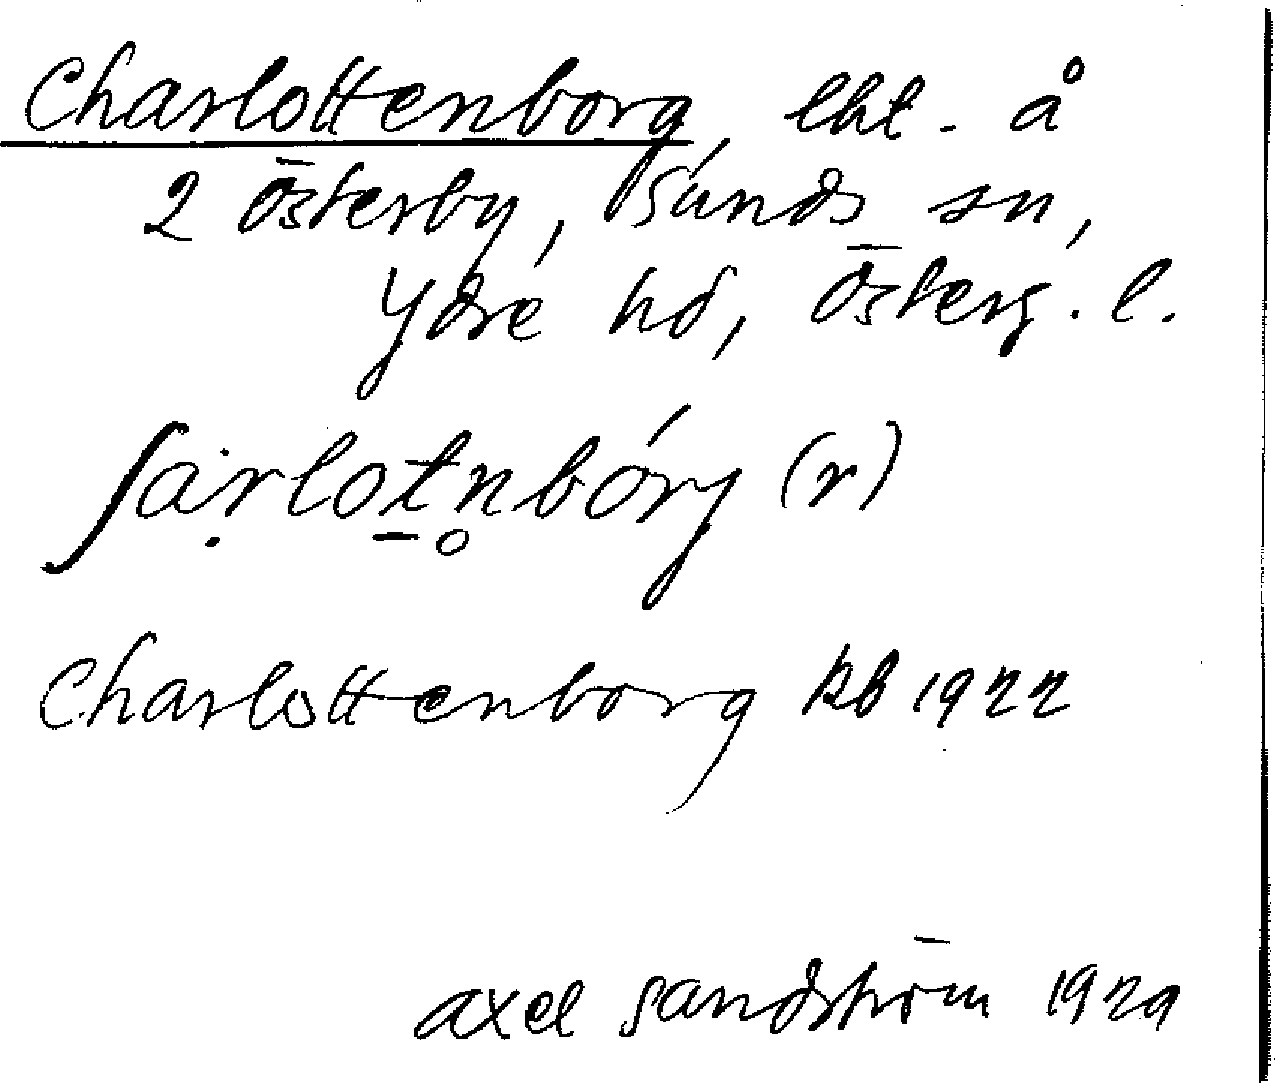 Charlottenborg, lht. å
2 Österby, Sunds sn,
Ydre hd, Österg. l.
ʃạrloṯn̥bórg (r)
Charlottenborg kb 1922
Axel Sandström 1929